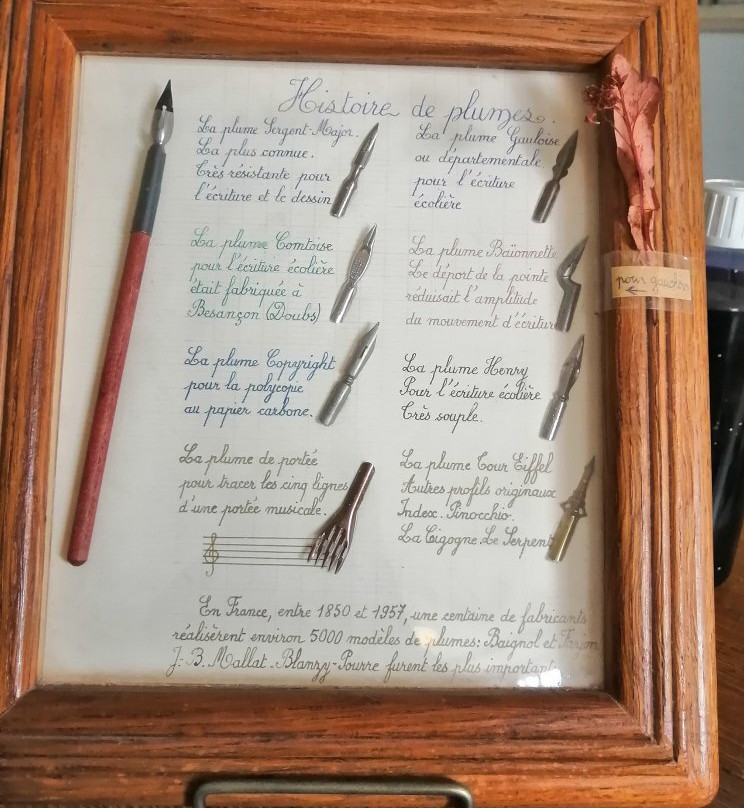 Histoire de plumes.
La plume Sergent-Major.
La plus connue.
Très résistante pour
l'écriture et le dessin
La plume Gauloise
ou départementale
pour l'écriture
écolière
La plume Comtoise
pour l'écriture écolière
était fabriquée à
Besançon (Doubs)
La plume Baïonnette
Le déport de la pointe
réduisait l'amplitude
du mouvement d'écriture
pour gaucher
La plume Copyright
pour la polycopie
au papier carbone.
La plume Henry
Pour l'écriture écolière
Très souple.
La plume de portée
pour tracer les cinq lignes
d'une portée musicale.
La plume Tour Eiffel
Autres profils originaux
Index. Pinocchio.
La Cigogne. Le Serpent
En France, entre 1850 et 1957, une centaine de fabricants
réalisèrent environ 5000 modèles de plumes: Baignol et Farjon
J.-B. Mallat. Blanzy-Pourre furent les plus importants